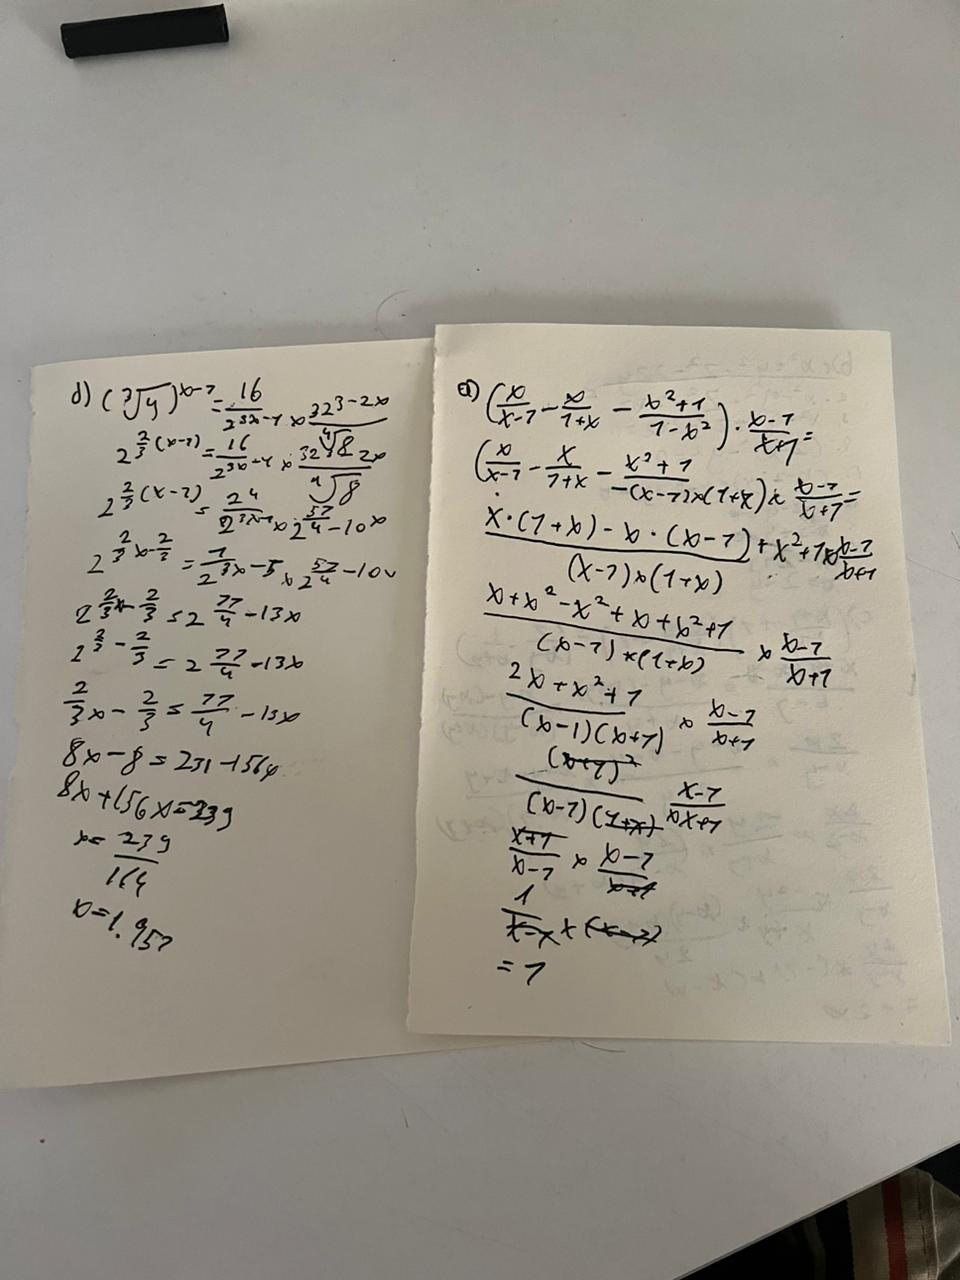 d) (³√4)^x-7 = 16/2^3x-4 × 32^3-2x/⁴√8
2^2/3(x-7) = 16/2^3x-4 × 32^3-2x/⁴√8
2^2/3(x-7) = 2^4/2^3x-4 × 2^57/4-10x
2^2/3x-2/3 = 7/2^3x-5 × 2^57/4-10x
2^2/3x-2/3 = 2^77/4-13x
2^2/3-2/3 = 2^77/4-13x
2/3x - 2/3 = 77/4 - 13x
8x-8=231-156x
8x+156x=239
x= 239/164
x=1.957
a) (x/x-7 - x/1+x - x²+1/1-x²) · x-7/x+1 =
(x/x-7 - x/1+x - x²+1/-(x-7)×(1+x)) × x-7/x+1 =
x·(1+x)-x·(x-7)+x²+1/(x-7)×(1+x) × x-7/x+1
x+x²-x²+x+x²+1/(x-7)×(1+x) × x-7/x+1
2x+x²+1/(x-1)(x+1) × x-7/x+1
(x+1)²/(x-7)(1+x) × x-7/x+1
x+1/x-7 × x-7/x+1
= 1